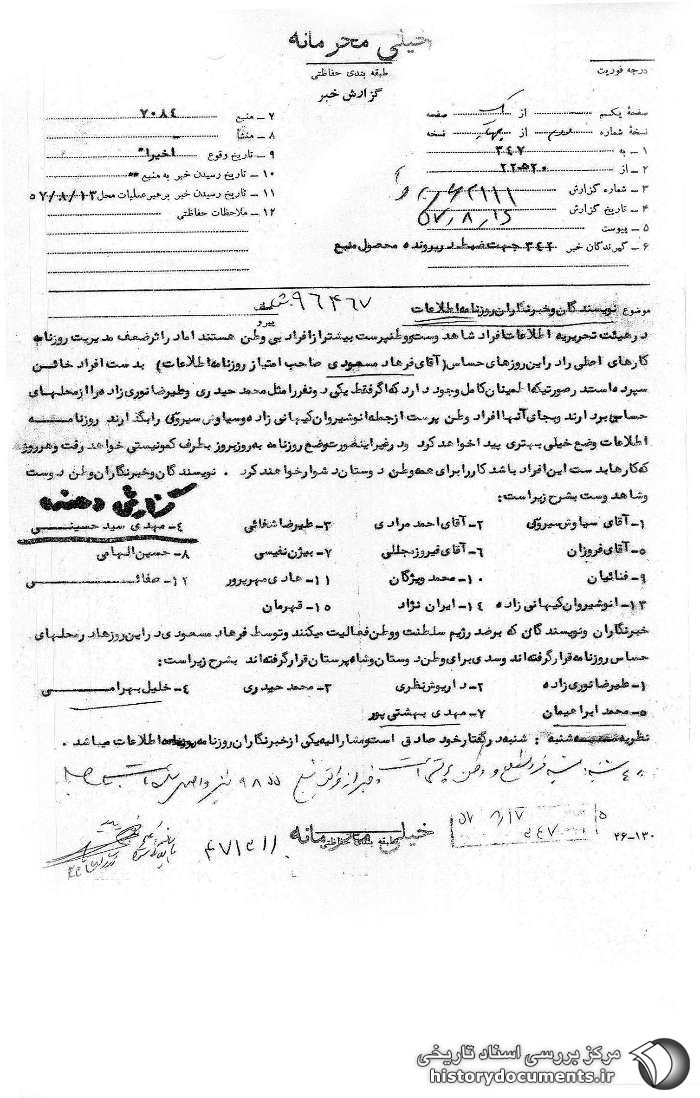 خیلی محرمانه
طبقه بندی حفاظتی
درجه فوریت
گزارش خبر
صفحهٔ یکم از یک صفحه
نسخهٔ شماره از چهار نسخه
۱ – به ۳۴۷
۲ – از ۲۲ھ۲۰
۳ – شماره گزارش
۴ – تاریخ گزارش
۵ – پیوست
۶ – گیرندگان خبر ۳۴۲ جهت ضبط در پرونده محصول منبع
۷ – منبع ۷۰۸۴
۸ – منشأ –
۹ – تاریخ وقوع اخیرا"
۱۰ – تاریخ رسیدن خبر به منبع "
۱۱ – تاریخ رسیدن خبر برهبر عملیات محل ۵۷/۸/۱۳
۱۲ – ملاحظات حفاظتی
موضوع نویسندگان و خبرنگاران روزنامه اطلاعات
پیرو
در هیئت تحریریه اطلاعات افراد شاهدوست و وطن پرست بیشتر از افراد بی وطن هستند اما در اثر ضعف مدیریت روزنامه
کارهای اصلی را در این روزهای حساس (آقای فرهاد مسعودی صاحب امتیاز روزنامه اطلاعات) بدست افراد خائن
سپرده است در صورتیکه اطمینان کامل وجود دارد که اگر فقط یکی دو نفر را مثل محمد حیدری و علیرضا نوری زاده را از محلهای
حساس بردارند و بجای آنها افراد وطن پرست از جمله انوشیروان کیهانی زاده و سیاوش سیروی را بگذارند روزنامه
اطلاعات وضع خیلی بهتری پیدا خواهد کرد و در غیر اینصورت وضع روزنامه به روز بروز بطرف کمونیستی خواهد رفت و هر روز
که کارها بدست این افراد باشد کار را برای همه وطن دوستان دشوار خواهند کرد . نویسندگان و خبرنگاران وطن دوست
و شاهدوست بشرح زیر است :
گزارش دهنده
۱– آقای سیاوش سیروی ۲– آقای احمد مرادی ۳– علیرضا شغائی ۴– مهدی سید حسینی
۵– آقای فروزان ۶– آقای فیروز مجللی ۷– بیژن نفیسی ۸– حسین الهامی
۹– فنائیان ۱۰– محمد ویژگان ۱۱– هادی مهرپرور ۱۲– صفائی
۱۳– انوشیروان کیهانی زاده ۱۴– ایران نژاد ۱۵– قهرمان
خبرنگاران و نویسندگان که بر ضد رژیم سلطنت و وطن فعالیت میکنند و توسط فرهاد مسعودی در این روزها در محلهای
حساس روزنامه قرار گرفته اند و سدی برای وطن دوستان و شاه پرستان قرار گرفته اند بشرح زیر است :
۱– علیرضا نوری زاده ۲– داریوش نظری ۳– محمد حیدری ۴– خلیل بهرامی
۵– محمد ابراهیمان ۷– مهدی بهشتی پور
نظریه شنبه : شنبه در گفتار خود صادق است و مشارالیه یکی از خبرنگاران روزنامه اطلاعات میباشد .
۵۷/۸/۱۷
۳۴۷
۳۶–۱۳۰
خیلی محرمانه
طبقه بندی حفاظتی
مرکز بررسی اسناد تاریخی
historydocuments.ir